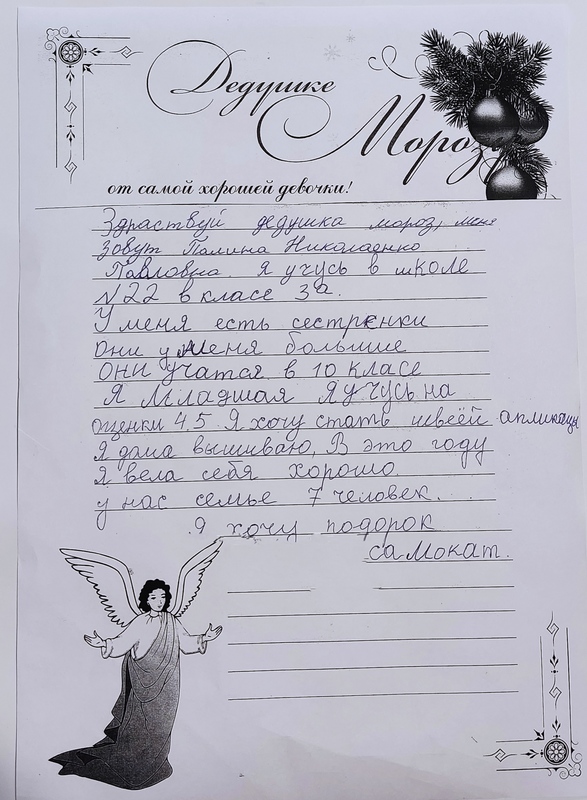 Дедушке
Морозу
от самой хорошей девочки!
Здраствуй дедушка мороз, меня
зовут Палина Николаенко
Павловна. Я учусь в школе
№22 в класе 3а.
У меня есть сестренки
они у меня большие
они учатся в 10 класе
Я Младшая Я учусь на
оценки 4,5 Я хочу стать швеёй апликации
Я дома вышиваю, В это году
Я вела себя хорошо
у нас семье 7 человек.
Я хочу подорок
самокат.